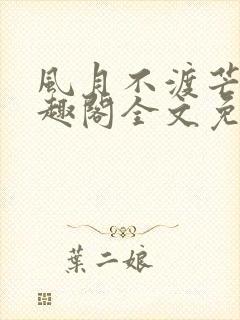 風月不渡芒
趣閣全文免
葉二娘